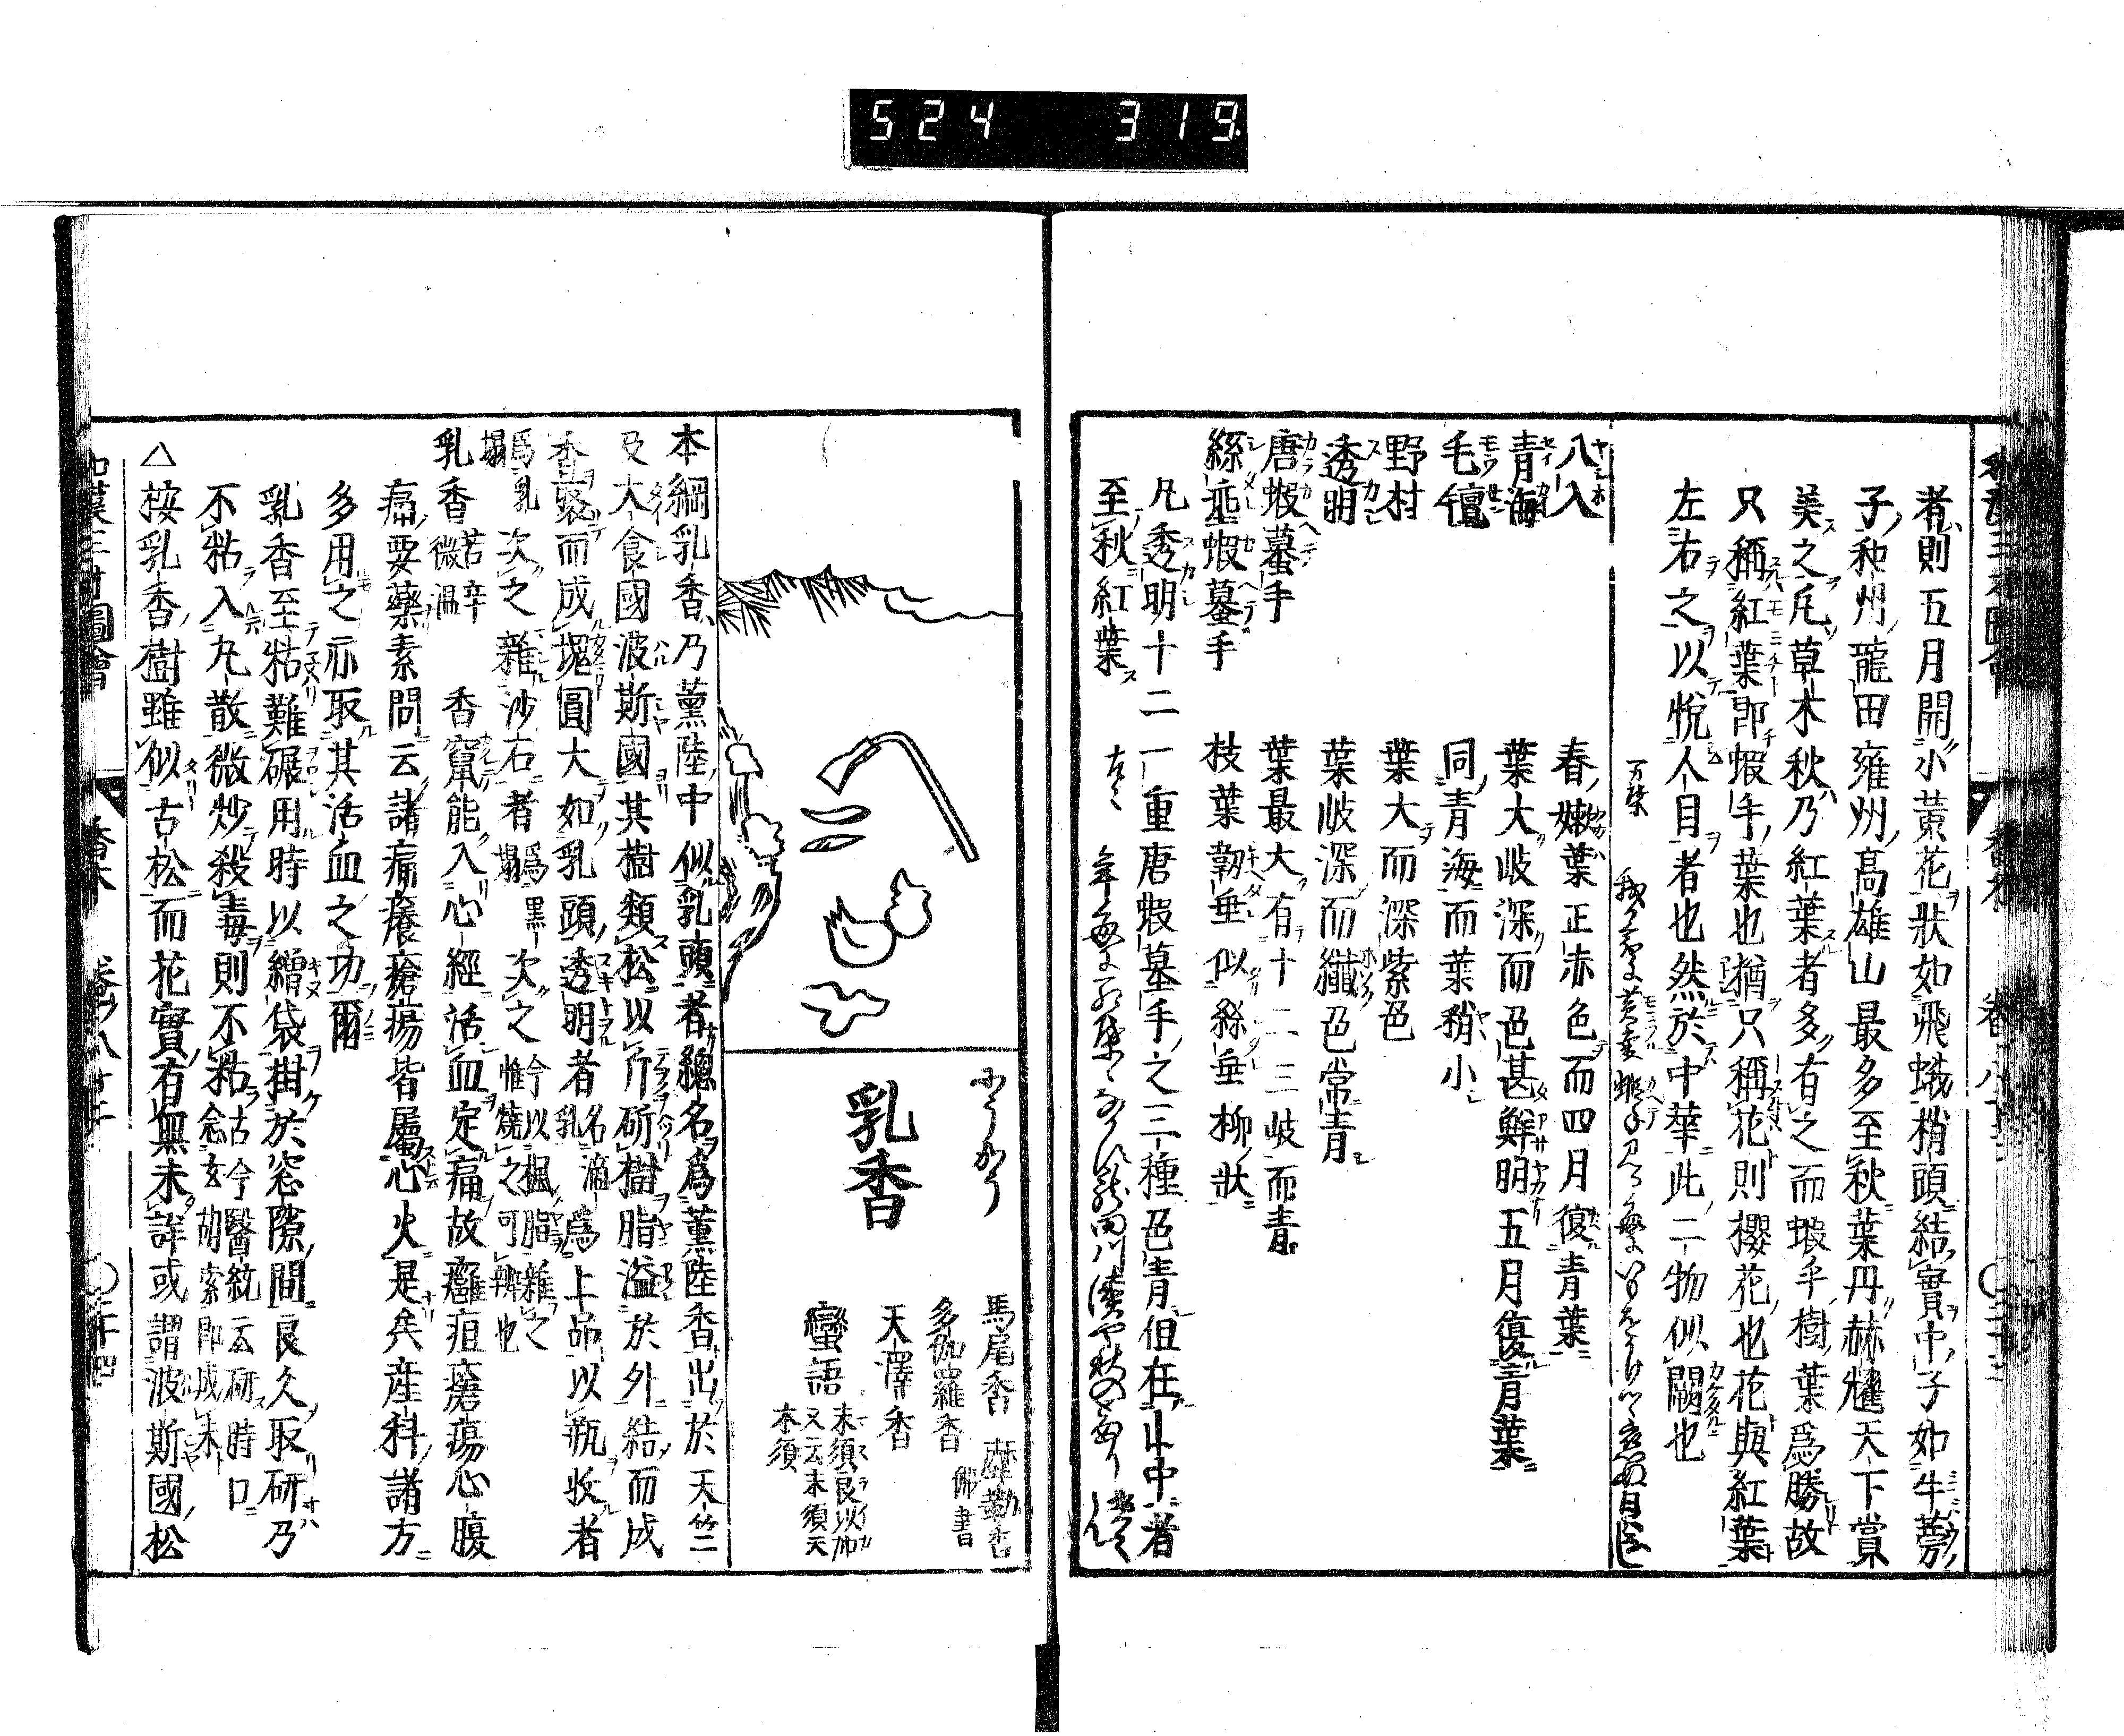 524 319
者則五月開小黃花狀如飛蛾梢頭結實中子如牛蒡
子和州龍田雍州高雄山最多至秋葉丹赫耀天下賞
美之凡草木秋乃紅葉者多有之而蝦手樹葉爲勝故
只稱紅葉卽蝦手葉也猶只稱花則櫻花也花與紅葉
左右之以悅人目者也然於中華此二物似闕也
万葉
八入 春嫩葉正赤色而四月復青葉
青海 葉大岐深而色甚鮮明五月復青葉
毛氈 同青海而葉稍小
野村 葉大而深紫色
透明 葉岐深而纎色常青
唐蝦蟇手 葉最大有十二三岐而青
絲垂蝦蟇手 枝葉韌垂似絲垂柳狀
凡透明十二一重唐蝦蟇手之三種色青但在山中者
至秋紅葉
乳香
にうかう
馬尾香 摩勒香
多伽羅香 佛書
天澤香
蠻語 未須良以加
又云未須天
本須
本綱乳香乃薰陸中似乳頭者總名爲薰陸香出於天竺
及大食國波斯國其樹類松以斤斫樹脂溢於外結而成
香聚而成塊圓大如乳頭透明者名滴乳爲上品以瓶收者
爲乳塌次之雜沙石者爲黑塌次之今以楓脂雜之惟燒之可辨也
乳香苦辛微溫 香竄能入心經活血定痛故癰疽瘡瘍心腹
痛要藥素問云諸痛癢瘡瘍皆屬心火是矣産科諸方
多用之亦取其活血之功爾
乳香至粘難碾用時以繒袋掛於窓隙間良久取研乃
不粘入丸散微炒殺毒則不粘 古今醫統云研時口念玄胡索卽成末
△按乳香樹雖似古松而花實有無未詳或謂波斯國松
和漢三才圖會 香木 卷ノ八十二 ○二十四